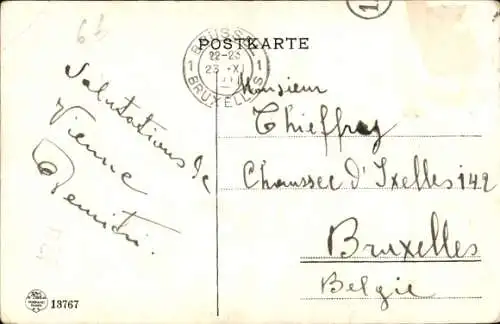 66
POSTKARTE
BRUSSEL
22-23
1 23 XI 1
BRUXELLES
Monsieur
Thieffry
Chaussee d'Ixelles 142
Bruxelles
Belgie
Salutations de
Vienne
Demitri.
13767